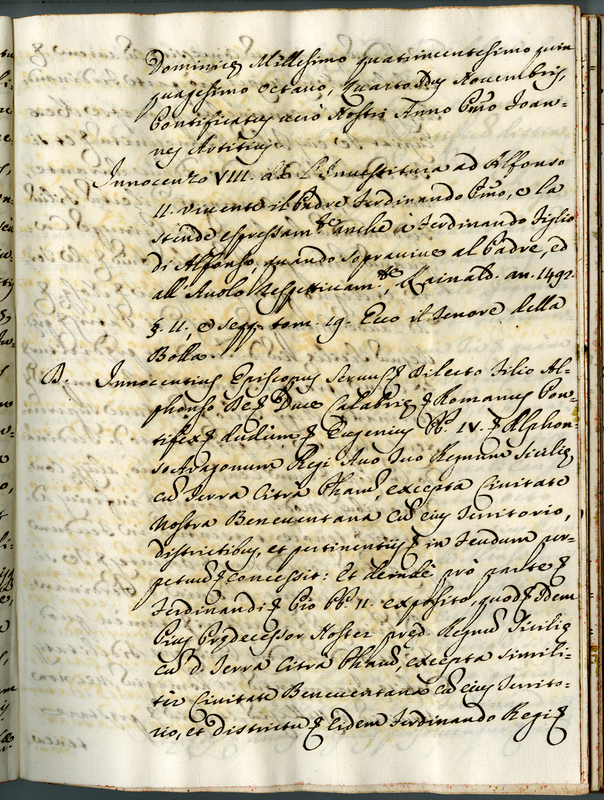 Dominicę Millesimo quatrincentesimo quin
quagesimo octavo, quarto Novembris,
Pontificatus verò Nostri Anno Pmo. Joan-
nes Artitius.
Innocenzo VIII. dà l'Investitura ad Alfonso
II. vivente il Padre Ferdinando Pmo, e la
stende espressamte. anche à Ferdinando Figlio
di Alfonso quando sopravive al Padre, ed
all'Avolo respettivamte, Rainald. an. 1492.
§. 11, e seqq. tom. 19. Ecco il tenore della
Bolla.
D. Innocentius Episcopus Dilecto Filio Al-
phonso Duce Calabrię & Romanus Pon-
tifex & dudum & Eugenius PP. IV. & Alphon-
so Aragonum Regi Avo Tuo Regnum Sicilię
cũ Terra Citra Pharũ, excepta Civitate
Nostra Beneventana cũ eius Territorio,
districtibus, et pertinentiis & in Feudum per-
petuũ & concessit: Et deinde prò parte &
Ferdinandi & Pio PP. II. exposito, quod & Idem
Pius Prędecessor Noster pręd. Regnũ Sicilię
cũ d. Terra Citra Pharũ, excepta simili-
ter Civitate Beneventana cũ eius Territo-
rio, et districtu & Eidem Ferdinando Regi &